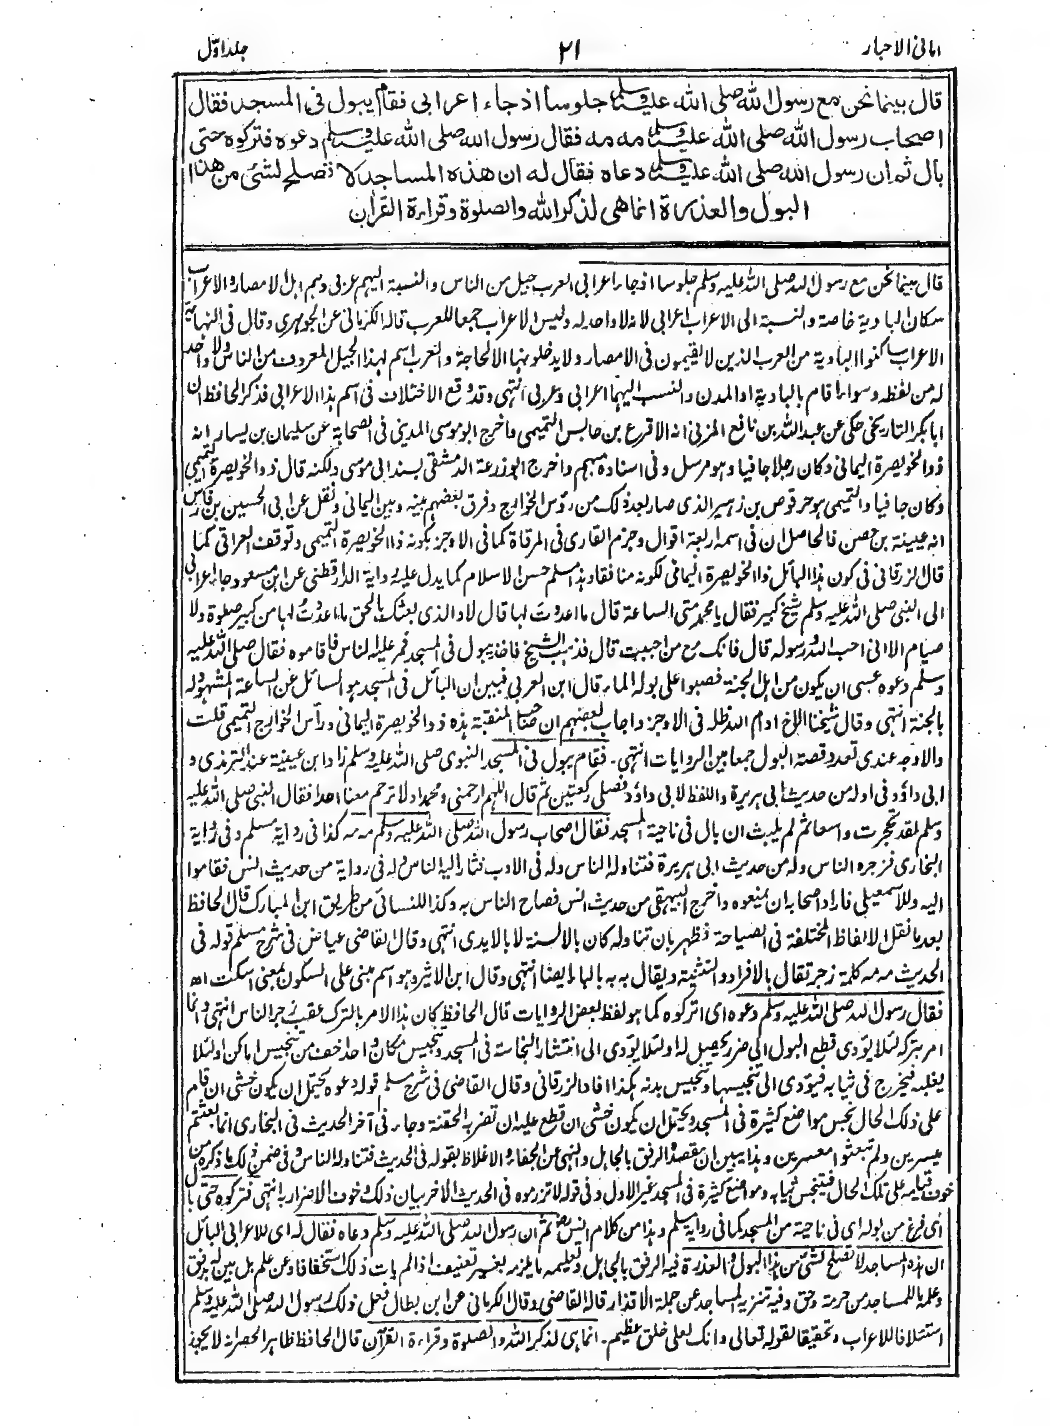 امانی الاحبار
۲۱
جلد اوّل
قال بينما نحن مع رسول الله صلى الله عليه وسلم جلوسا اذ جاء اعرابی فقام يبول فی المسجد فقال
اصحاب رسول الله صلى الله عليه وسلم مه مه فقال رسول الله صلى الله عليه وسلم دعوه فتركوه حتى
بال ثم ان رسول الله صلى الله عليه وسلم دعاه فقال له ان هذه المساجد لا تصلح لشئ من هذا
البول والعذرة انما هی لذكر الله والصلوة وقراءة القرآن
قال بينما نحن مع رسول الله صلى الله عليه وسلم جلوسا اذ جاء اعرابی العرب جيل من الناس والنسبة اليهم عربی وهم اهل الامصار والاعراب
سكان البادية خاصة والنسبة الى الاعراب اعرابی لانه لا واحد له وليس الاعراب جمعا للعرب قاله الكرمانی عن الجوهری وقال فی النهاية
الاعراب ساكنوا البادية من العرب الذين لا يقيمون فی الامصار ولا يدخلونها الا لحاجة والعرب اسم لهذا الجيل المعروف من الناس ولا واحد
له من لفظه وسواء اقام بالبادية او المدن والنسب اليهما اعرابی وعربی انتهى وقد وقع الاختلاف فی اسم هذا الاعرابی فذكر الحافظ ان
ابا بكر التاريخی حكى عن عبد الله بن نافع المزنی انه الاقرع بن حابس التميمی واخرج ابو موسى المدينی فی الصحابة عن سليمان بن يسار انه
ذو الخويصرة اليمانی وكان رجلا جافيا وهو مرسل وفی اسناده مبهم واخرج ابو زرعة الدمشقی بسند ابی موسى ولكنه قال ذو الخويصرة التميمی
وكان جافيا والتميمی هو حرقوص بن زهير الذی صار بعد ذلك من رؤس الخوارج وفرق بعضهم بينه وبين اليمانی ونقل عن ابی الحسين بن فارس
انه عيينة بن حصن فالحاصل ان فی اسمه اربعة اقوال وجزم القاری فی المرقاة كما فی الاوجز بكونه ذا الخويصرة التميمی وتوقف العراقی كما
قال الزرقانی فی كون هذا البائل ذا الخويصرة اليمانی لكونه منافقا وهذا مسلم حسن الاسلام كما يدل عليه رواية الدارقطنی عن ابن مسعود جاء اعرابی
الى النبی صلى الله عليه وسلم شيخ كبير فقال يا محمد متى الساعة قال ما اعدوت لها قال لا والذی بعثك بالحق ما اعددت لها من كبير صلوة ولا
صيام الا انی احب الله ورسوله قال فانك مع من احببت قال فذهب الشيخ فاخذ يبول فی المسجد فمر عليه الناس فاقاموه فقال صلى الله عليه
وسلم دعوه عسى ان يكون من اهل الجنة فصبوا على بوله الماء قال ابن العربی فبين ان البائل فی المسجد هو السائل عن الساعة المشهود له
بالجنة انتهى وقال شيخنا الاخ ادام الله ظله فی الاوجز واجاب بعضهم ان صاحب المنقبة هذه ذو الخويصرة اليمانی ورأس الخوارج التميمی قلت
والاوجه عندی تعدد قصة البول جمعا بين الروايات انتهى۔ فقام يبول فی المسجد النبوی صلى الله عليه وسلم زاد ابن عيينة عند الترمذی و
ابی داؤد فی اوله من حديث ابی هريرة واللفظ لابی داؤد فصلى ركعتين ثم قال اللهم ارحمنی ومحمدا ولا ترحم معنا احدا فقال النبی صلى الله عليه
وسلم لقد تحجرت واسعا ثم لم يلبث ان بال فی ناحية المسجد فقال اصحاب رسول الله صلى الله عليه وسلم مه مه كذا فی رواية مسلم وفی رواية
البخاری فزجره الناس وله من حديث ابی هريرة فتناوله الناس وله فی الادب فثار اليه الناس وله فی رواية من حديث انس فقاموا
اليه وللاسمعيلی فاراد اصحابه ان يمنعوه واخرج البيهقی من حديث انس فصاح الناس به وكذا للنسائی من طريق ابن المبارك قال الحافظ
بعد ما نقل الالفاظ المختلفة فی الصياحة فظهر بان تناوله كان بالالسنة لا بالايدی انتهى وقال القاضی عياض فی شرح مسلم قوله فی
الحديث مه مه كلمة زجر تقال بالافراد والتثنية ويقال به به بالباء ايضا انتهى وقال ابن الاثير وهو اسم مبنی على السكون بمعنى اسكت اه
فقال رسول الله صلى الله عليه وسلم دعوه ای اتركوه كما هو لفظ بعض الروايات قال الحافظ كان هذا الامر بالترك عقب زجر الناس انتهى وانما
امر بتركه لئلا يؤدی قطع البول الى ضرر يحصل له او لئلا يؤدی الى انتشار النجاسة فی المسجد وتنجيس مكان واحد اخف من تنجيس اماكن او لئلا
يغلبه فيخرج فی ثيابه فيؤدی الى تنجيسها وتنجيس بدنه هكذا افاد الزرقانی وقال القاضی فی شرح مسلم قوله دعوه يحتمل ان يكون خشی ان قام
على ذلك الحال نجس مواضع كثيرة فی المسجد ويحتمل ان يكون خشی ان قطع عليه ان تضر به الحقنة وجاء فی آخر الحديث فی البخاری انما بعثتم
ميسرين ولم تبعثوا معسرين وهذا يبين ان مقصده الرفق بالجاهل والنهی عن الجفاء والاغلاظ بقوله فی الحديث فتناوله الناس وفی ضمن ذلك ما ذكره من
خوف قيامه على تلك الحال فيتنجس ثيابه ومواضع كثيرة فی المسجد غير الاول وفی قوله لا تزرموه فی الحديث الآخر بيان ذلك وخوف الاضرار به انتهى فتركوه حتى بال
ای فرغ من بوله ای فی ناحية من المسجد كما فی رواية مسلم وهذا من كلام انس ثم ان رسول الله صلى الله عليه وسلم دعاه فقال له ای للاعرابی البائل
ان هذه المساجد لا تصلح لشئ من هذا البول والعذرة فيه الرفق بالجاهل وتعليمه ما يلزمه بغير تعنيف اذا لم يأت ذلك استخفافا وعن علم بل بين له برفق
وعلمه ما للمساجد من حرمة وحق وفيه تنزيه المساجد عن جملة الاقذار قاله القاضی وقال الكرمانی عن ابن بطال فعل ذلك رسول الله صلى الله عليه وسلم
استئلافا للاعراب وتحقيقا لقوله تعالى وانك لعلى خلق عظيم۔ انما هی لذكر الله والصلوة وقراءة القرآن قال الحافظ ظاهر الحصر انه لا يجوز